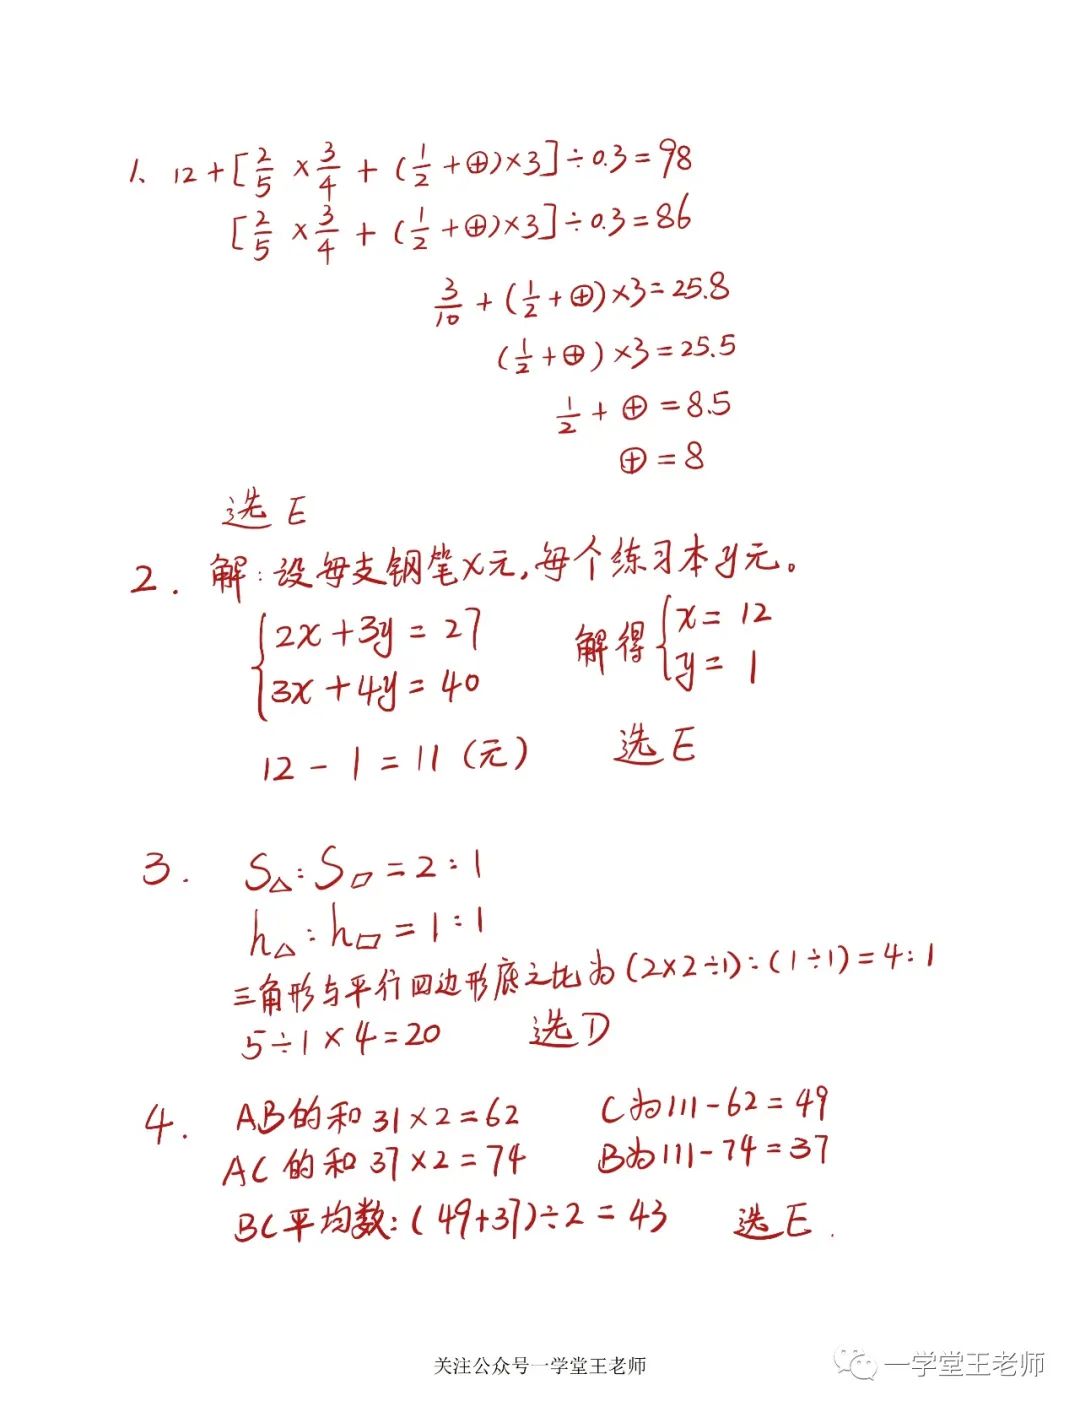 1、 12+[2/5×3/4+(1/2+⊕)×3]÷0.3=98
[2/5×3/4+(1/2+⊕)×3]÷0.3=86
3/10+(1/2+⊕)×3=25.8
(1/2+⊕)×3=25.5
1/2+⊕=8.5
⊕=8
选E
2. 解:设每支钢笔x元,每个练习本y元。
{2x+3y=27
3x+4y=40
解得{x=12
y=1
12-1=11(元) 选E
3. S△:S▱=2:1
h△:h▱=1:1
三角形与平行四边形底之比为(2×2÷1):(1÷1)=4:1
5÷1×4=20 选D
4. AB的和31×2=62 C为111-62=49
AC的和37×2=74 B为111-74=37
BC平均数:(49+37)÷2=43 选E.
关注公众号一学堂王老师
一学堂王老师